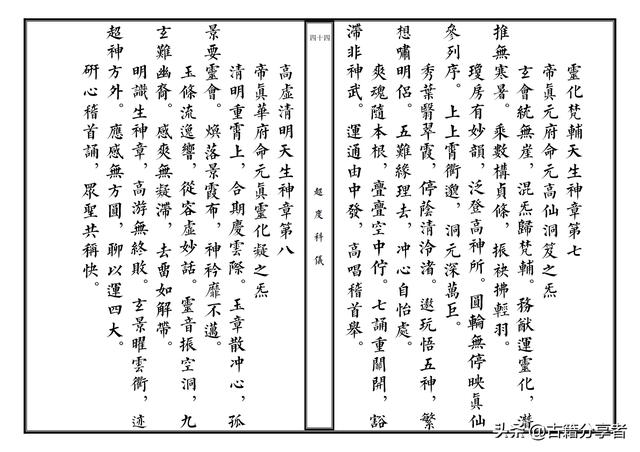 靈化梵輔天生神章第七
帝眞元府命元高仙洞笈之炁
玄會統無崖，混炁歸梵輔。務猷運靈化，潛
推無寒暑。乘數構貞條，振袂拂輕羽。
瓊房有妙韻，泛登高神所。圓輪無停映眞仙
參列序。上上霄衢邈，洞元深萬巨。
秀葉翳翠霞，停蔭清泠渚。遨玩悟五神，繁
想嘯明侶。五難緣理去，冲心自怡處。
爽魂隨本根，亹亹空中佇。七誦重關開，豁
滯非神武。運通由中發，高唱稽首舉。
四十四
超度科儀
高虛清明天生神章第八
帝眞華府命元眞靈化凝之炁
清明重霄上，合期慶雲際。玉章散冲心，孤
景要靈會。熉落景霞布，神衿靡不邁。
玉條流逸響，從容虛妙話。靈音振空洞，九
玄難幽裔。感爽無凝滯，去畱如解帶。
明識生神章，高游無終敗。玄景曜雲衢，迹
超神方外。應感無方圓，聊以運四大。
研心稽首誦，眾聖共稱快。
头条@古籍分享者